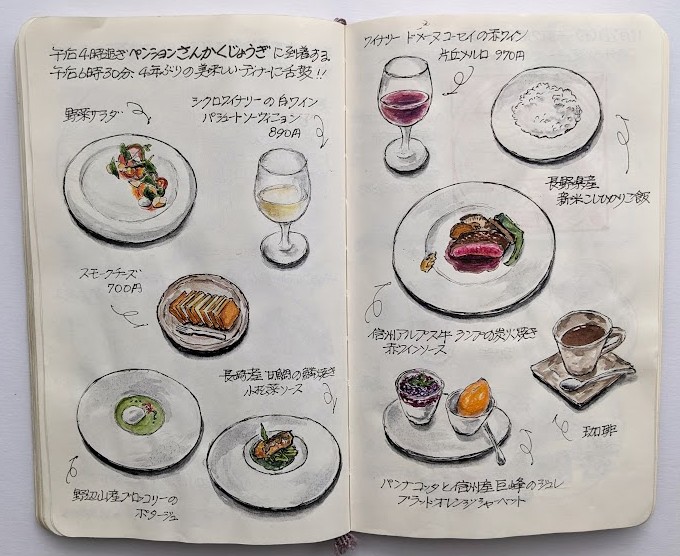 午后4時過ぎペンションさんかくじょうぎに到着する
午后6時30分、4年ぶりの美味しいディナーに舌鼓!!
野菜サラダ
シクロワイナリーの白ワイン
パシュートソーヴィニョン
890円
スモークチーズ
700円
長崎産甘鯛の鱗焼き
小松菜ソース
野辺山産ブロッコリーの
ポタージュ
ワイナリードメーヌコーセイの赤ワイン
片丘メルロ 970円
長野県産
新米こしひかりご飯
信州アルプス牛ランプの炭火焼き
赤ワインソース
珈琲
パンナコッタと信州産巨峰のジュレ
ブラッドオレンジシャーベット